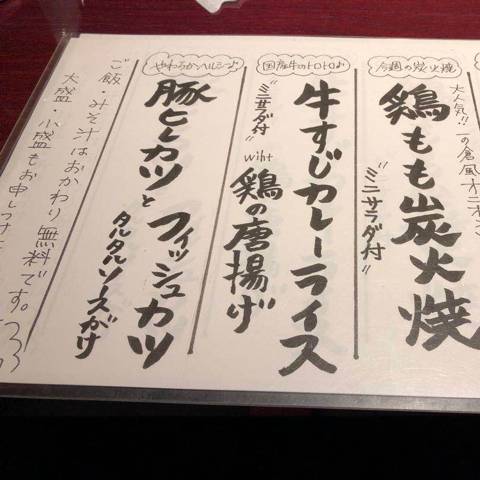 大人気!!一の倉風オニオン
今週の炭火焼
鶏もも炭火焼
"ミニサラダ付"
国産牛のトロトロ♪
牛すじカレーライス
"ミニサラダ付" wiht 鶏の唐揚げ
やわらかヘルシー♪
豚ヒレカツとフィッシュカツ
タルタルソースがけ
ご飯・みそ汁はおかわり無料です。
大盛・小盛もお申しつけ